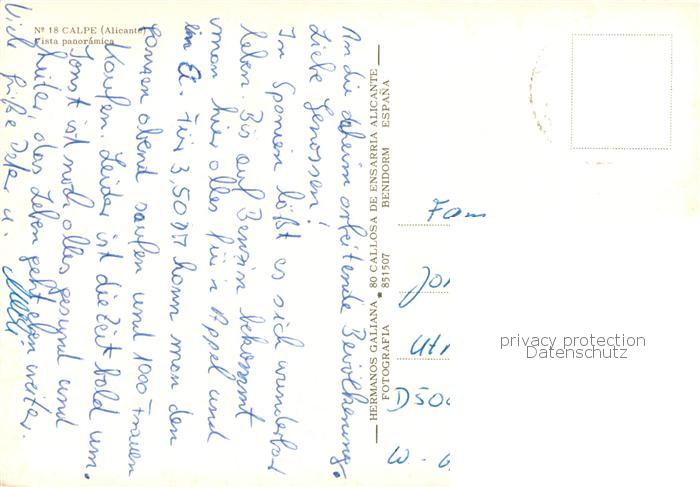 Nº 18 CALPE (Alicante)
Vista panorámica
An die daheim arbeitende Bevölkerung.
Liebe Genossen!
In Spanien läßt es sich wunderbar
leben. Bis auf Benzin bekommt
man hier alles für'n Appel und
ein Ei. Für 3,50 DM kann man den
ganzen abend saufen und 1000 Frauen
kaufen. Leider ist die Zeit bald um.
Sonst ist noch alles gesund und
heiter, das Leben geht eben weiter.
Viele Grüße Peter u.
HERMANOS GALIANA * 80 CALLOSA DE ENSARRIA ALICANTE
FOTOGRAFIA 851507 BENIDORM ESPAÑA
Fam
D500
W-
privacy protection
Datenschutz